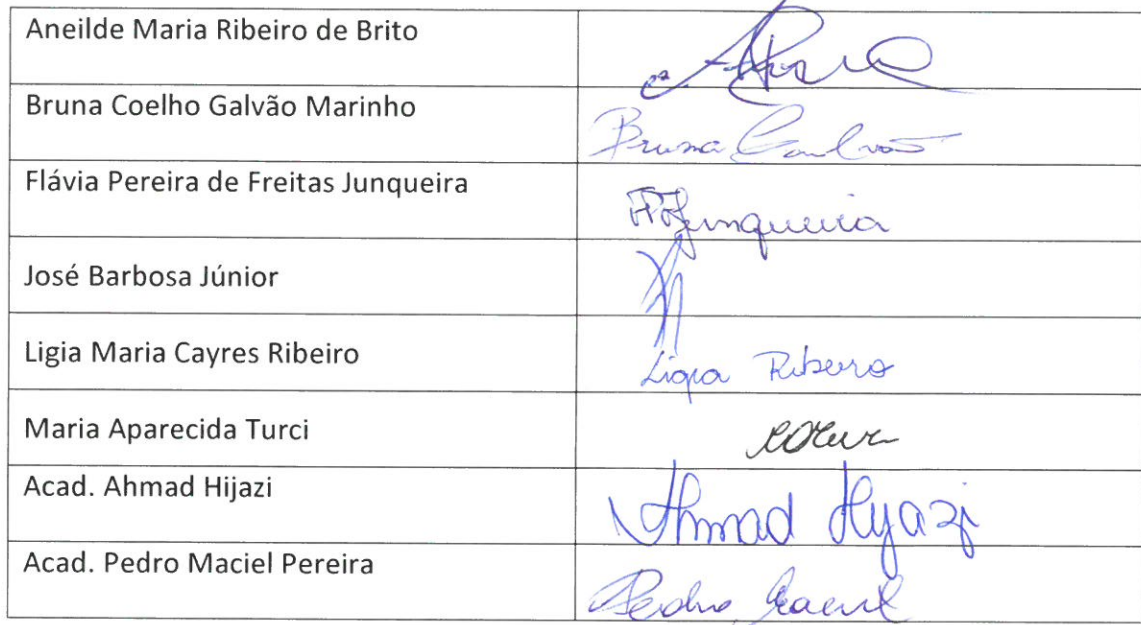 Aneilde Maria Ribeiro de Brito
Bruna Coelho Galvão Marinho
Bruna Galvão
Flávia Pereira de Freitas Junqueira
FFJunqueira
José Barbosa Júnior
Ligia Maria Cayres Ribeiro
Ligia Ribeiro
Maria Aparecida Turci
Acad. Ahmad Hijazi
Ahmad Hijazi
Acad. Pedro Maciel Pereira
Pedro Maciel